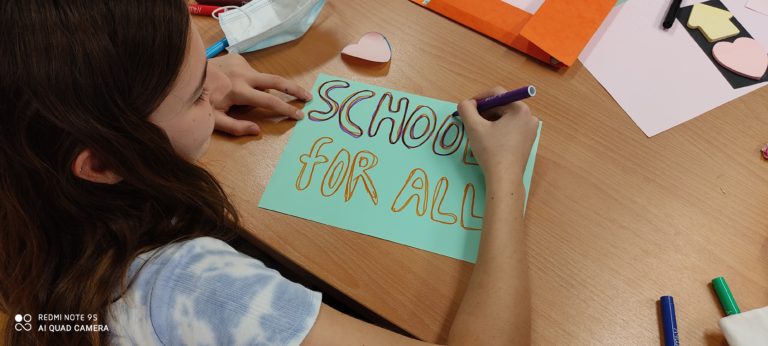 SCHOOL
FOR ALL
REDMI NOTE 9S
AI QUAD CAMERA